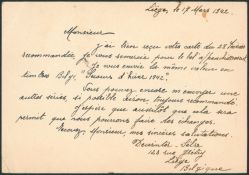 Liège, le 17 Mars 1942.
Monsieur
J'ai bien reçu votre carte du 28 Février
recommandée, je vous remercie pour le bel affranchissement.
Je vous envoie la même valeur en
timbres Belges "Secours d'hiver 1942".
Vous pouvez encore m'envoyer une
autre série, si possible, toujours recommandé.
J'espère que aussitôt que cela sera
permit que nous pourrons faire des échanges.
Recevez Monsieur, mes sincères salutations.
Félix
123 rue
Liège
Belgique